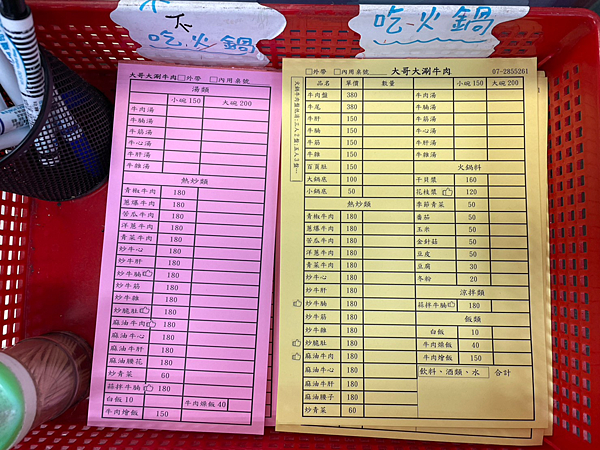 不
吃火鍋
吃火鍋
大哥大涮牛肉 □外帶 □內用桌號
湯類
小碗 150 大碗 200
牛肉湯
牛腩湯
牛筋湯
牛心湯
牛肝湯
牛雜湯
熱炒類
青椒牛肉 180
蔥爆牛肉 180
苦瓜牛肉 180
洋蔥牛肉 180
青菜牛肉 180
炒牛心 180
炒牛肝 180
炒牛腩 180
炒牛筋 180
炒牛雜 180
炒脆肚 180
麻油牛肉 180
麻油牛心 180
麻油牛肝 180
麻油腰花 180
炒青菜 60
蒜拌牛腩 180
白飯 10 牛肉燥飯 40
牛肉燴飯 150
大哥大涮牛肉 07-2855261
□外帶 □內用桌號
品名 單價 數量 小碗 150 大碗 200
牛肉盤 380 牛肉湯
牛尾 380 牛腩湯
牛肝 150 牛筋湯
牛腩 150 牛心湯
牛筋 150 牛肝湯
牛雜 150 牛雜湯
百頁肚 150 火鍋料
大鍋底 100 干貝漿 160
小鍋底 50 花枝漿 120
熱炒類 季節青菜 50
青椒牛肉 180 番茄 50
蔥爆牛肉 180 玉米 50
苦瓜牛肉 180 金針菇 50
洋蔥牛肉 180 豆皮 50
青菜牛肉 180 豆腐 30
炒牛心 180 冬粉 20
炒牛肝 180 涼拌類
炒牛腩 180 蒜拌牛腩 180
炒牛筋 180 飯類
炒牛雜 180 白飯 10
炒脆肚 180 牛肉燥飯 40
麻油牛肉 180 牛肉燴飯 150
麻油牛心 180 飲料、酒類、水 合計
麻油牛肝 180
麻油腰子 180
炒青菜 60